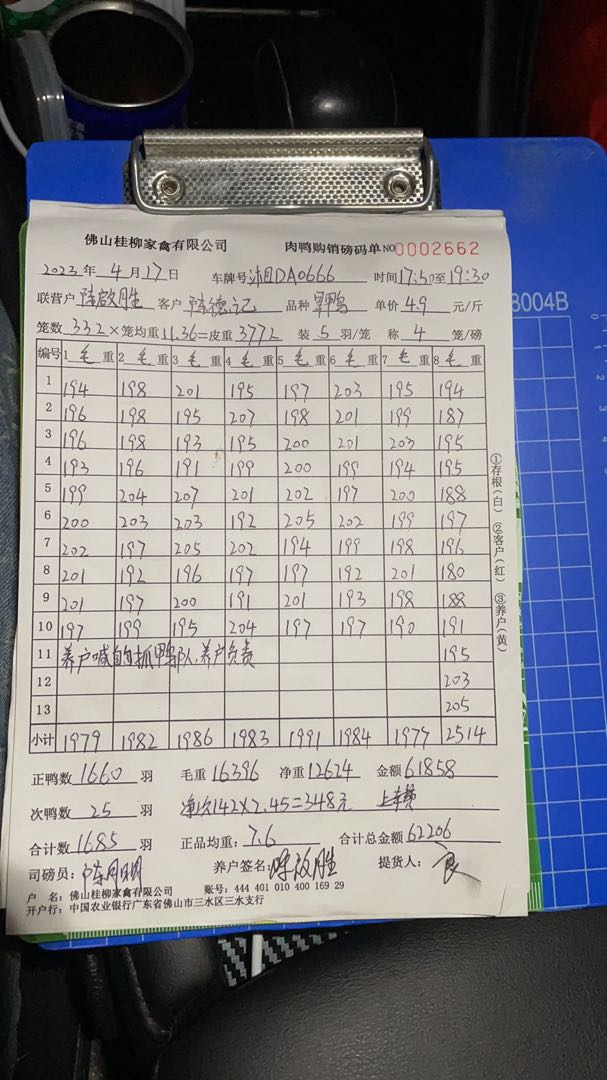 佛山桂柳家禽有限公司 肉鸭购销磅码单 NO 0002662
2023年4月17日 车牌号 湘DA0666 时间 17:50至19:30
联营户 陈啟胜 客户 陈德记 品种 草鸭 单价 4.9 元/斤
笼数 332 ×笼均重 11.36 =皮重 3772 装 5 羽/笼 称 4 笼/磅
编号 1 毛 重 2 毛 重 3 毛 重 4 毛 重 5 毛 重 6 毛 重 7 毛 重 8 毛 重
1 194 198 201 195 197 203 195 194
2 196 198 195 207 198 201 199 187
3 196 198 193 195 200 201 203 195
4 193 196 191 199 200 199 194 195
5 199 204 207 201 202 197 200 188
6 200 203 203 192 205 202 199 197
7 202 197 205 202 194 199 198 196
8 201 192 196 197 197 192 201 180
9 201 197 200 191 201 193 198 188
10 197 199 195 204 197 197 190 191
11 养户喊的抓鸭队,养户负责 195
12 203
13 205
小计 1979 1982 1986 1983 1991 1984 1977 2514
①存根(白) ②客户(红) ③养户(黄)
正鸭数 1660 羽 毛重 16396 净重 12624 金额 61858
次鸭数 25 羽 净次142×2.45=348元 上车费
合计数 1685 羽 正品均重: 7.6 合计总金额 62206
司磅员: 陈明 养户签名: 陈啟胜 提货人: 良
户 名: 佛山桂柳家禽有限公司 账号: 444 401 010 400 169 29
开户行: 中国农业银行广东省佛山市三水区三水支行
8004B